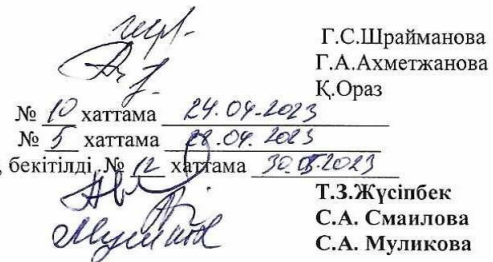 Г.С.Шрайманова
Г.А.Ахметжанова
Қ.Ораз
№ 10 хаттама 24.04.2023
№ 5 хаттама 28.04.2023
, бекітілді, № 12 хаттама 30.05.2023
Т.З.Жүсіпбек
С.А. Смаилова
С.А. Муликова